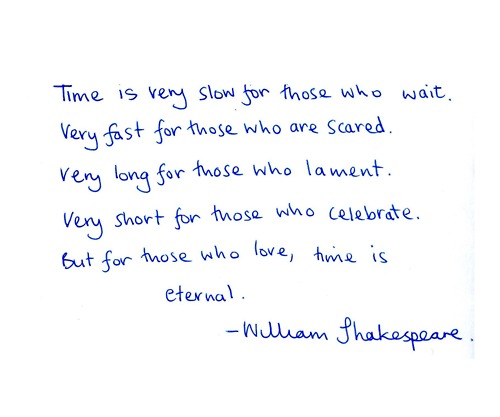 Time is very slow for those who wait.
Very fast for those who are scared.
very long for those who lament.
Very short for those who celebrate.
But for those who love, time is
eternal.
-William Shakespeare.